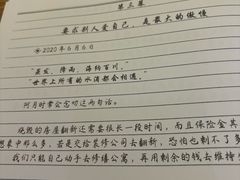 第三幕
要求别人爱自己，是最大的傲慢
※2020年6月6日
“蒸发，降雨，海纳百川，”
“世界上所有的水滴都会相遇。”
阿月时常会念叨这两句话。
烧毁的房屋翻新还需要很长一段时间，而且保险金其
想象中那么多，若是交给装修公司去翻新，恐怕也剩不了多
我们只能自己动手去修缮公寓，再用剩余的钱去维持